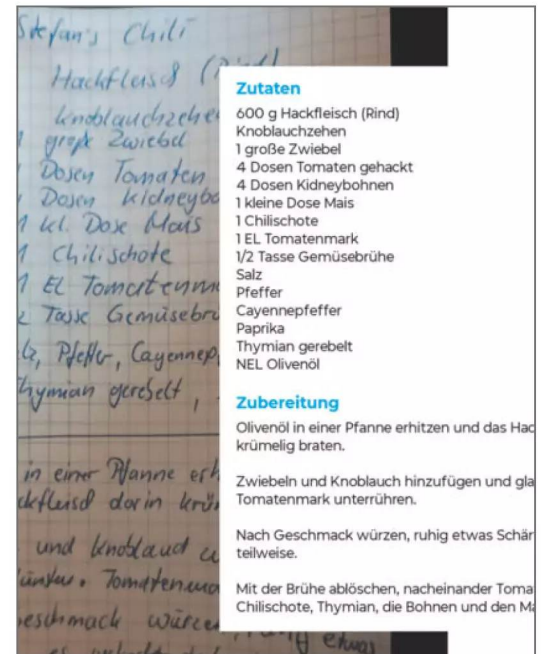 Stefan's Chili
Hackfleisch (Rind)
Knoblauchzehe
1 große Zwiebel
Dosen Tomaten
Dosen Kidneybo
1 kl. Dose Mais
1 Chilischote
1 El Tomatenm
Tasse Gemüsebrü
lz, Pfeffer, Cayennep
hymian gerebelt,
in einer Pfanne erh
ckfleisch darin krü
und Knoblauch
ünsten. Tomatenma
eschmack würze
etwas
Zutaten
600 g Hackfleisch (Rind)
Knoblauchzehen
1 große Zwiebel
4 Dosen Tomaten gehackt
4 Dosen Kidneybohnen
1 kleine Dose Mais
1 Chilischote
1 EL Tomatenmark
1/2 Tasse Gemüsebrühe
Salz
Pfeffer
Cayennepfeffer
Paprika
Thymian gerebelt
NEL Olivenöl
Zubereitung
Olivenöl in einer Pfanne erhitzen und das Hac
krümelig braten.
Zwiebeln und Knoblauch hinzufügen und gla
Tomatenmark unterrühren.
Nach Geschmack würzen, ruhig etwas Schär
teilweise.
Mit der Brühe ablöschen, nacheinander Toma
Chilischote, Thymian, die Bohnen und den Ma